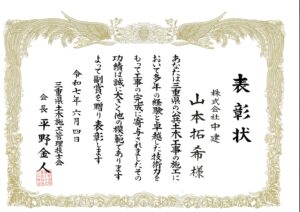 表彰状
株式会社中建
山本拓希様
あなたは三重県の公共土木工事の施工に
おいて多年の経験と卓越した技術力を
もって工事の完成に寄与されましたその
功績は誠に大きく他の模範であります
よって副賞を贈り表彰します
令和七年六月四日
三重県土木施工管理技士会
会長 平野金人